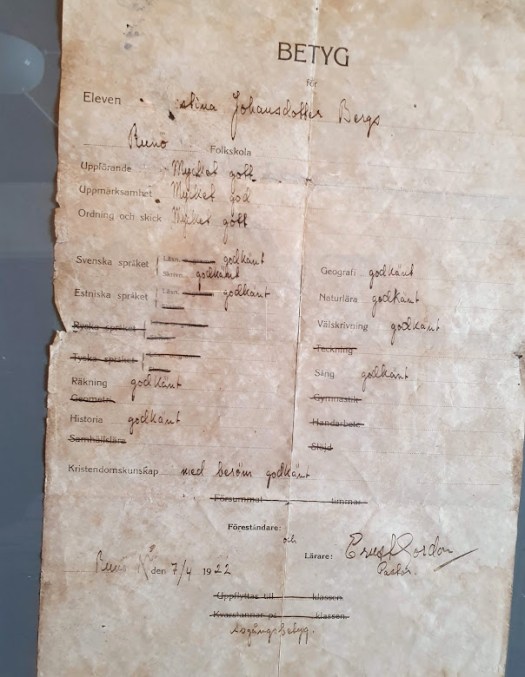 BETYG
för
Eleven Johansdotter Bergs
Runö Folkskola
Uppförande Mycket gott
Uppmärksamhet Mycket god
Ordning och skick Mycket gott
Svenska språket Läsn. godkänt
Skrivn. godkänt
Estniska språket Läsn. godkänt
Ryska språket
Tyska språket
Räkning godkänt
Geometri
Historia godkänt
Samhällslära
Kristendomskunskap med beröm godkänt
Geografi godkänt
Naturlära godkänt
Välskrivning godkänt
Teckning
Sång godkänt
Gymnastik
Handarbete
Slöjd
Försummat timmar
Föreståndare:
och
Lärare:
Pastor.
Runö den 7/4 1922
Uppflyttas till klassen
Kvarstannar på klassen.
Avgångsbetyg.